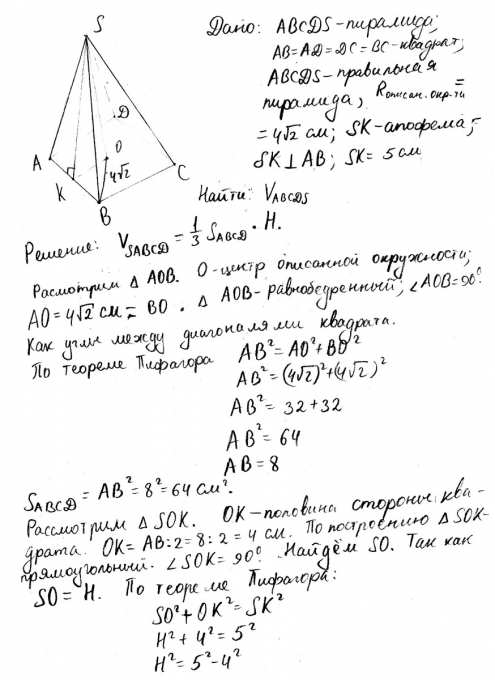 S
D
O
A
4√2
C
K
B
Дано: ABCDS-пирамида;
AB=AD=DC=BC-квадрат;
ABCDS-правильная
пирамида, Rописан. окр-ти =
= 4√2 см; SK-апофема;
SK⊥AB; SK= 5 см
Найти: VABCDS
Решение: VSABCD = 1/3 SABCD · H.
Расмотрим △ AOB. O-центр описанной окружности;
AO=4√2 см = BO. △ AOB-равнобедренный; ∠AOB=90°.
Как углы между диагоналями квадрата.
По теореме Пифагора AB²=AO²+BO²
AB²=(4√2)²+(4√2)²
AB²= 32+32
AB²= 64
AB=8
SABCD = AB²=8²=64 см².
Рассмотрим △ SOK. OK-половина стороны ква-
драта. OK= AB:2=8:2=4 см. По построению △ SOK-
прямоугольный. ∠SOK=90°. Найдём SO. Так как
SO= H. По теореме Пифагора:
SO²+OK²=SK²
H²+4²=5²
H²=5²-4²